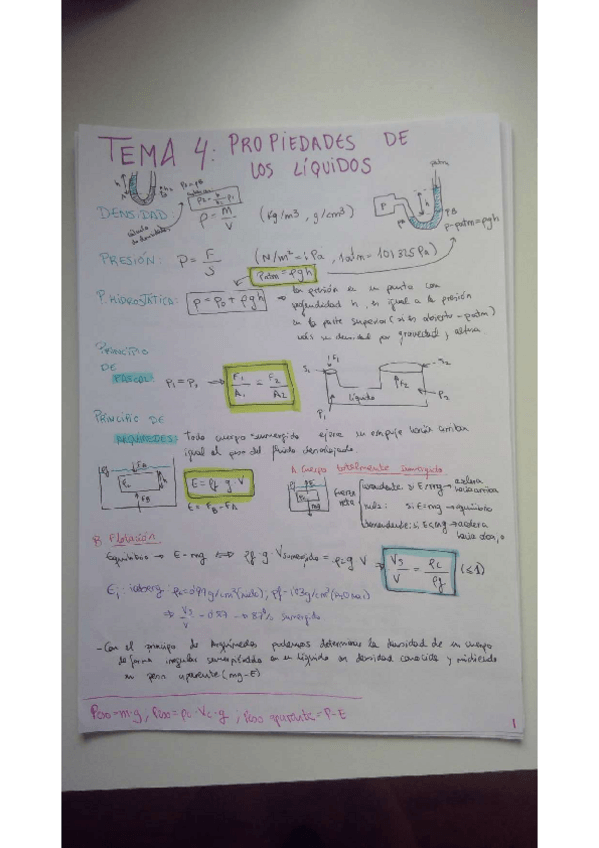 TEMA 4: PROPIEDADES DE
LOS LÍQUIDOS
DENSIDAD: ρ = M/V (Kg/m³, g/cm³)
p-patm=ρgh
PRESIÓN: P = F/S (N/m² = 1 Pa, 1atm = 101325 Pa)
Patm = ρgh
P. HIDROSTÁTICA: P = P₀ + ρgh ⇒ la presión a un punto con
profundidad h, es igual a la presión
en la parte superior (si es abierto - patm)
más su densidad por gravedad y altura
PRINCIPIO
DE
PASCAL P₁ = P₂ ⟹ F₁/A₁ = F₂/A₂
S₁ F₁ S₂
líquido
P₁ P₂
PRINCIPIO DE
ARQUÍMEDES: Todo cuerpo sumergido un empuje hacia arriba
igual al peso del fluido
E = ρf · g · V
E = FB - FA
A. Cuerpo totalmente sumergido
Fuerza
neta
ascendente: si E>mg → acelera
hacia arriba
nula: si E=mg → equilibrio
descendente: si E<mg → acelera
hacia abajo
B. Flotación
Equilibrio → E = mg ⟺ ρf · g · Vsumergido = ρc g V ⇒ Vs/V = ρc/ρf (≤1)
Ej: iceberg
⇒ Vs/V = 0'87 → 87% sumergido
- Con el principio de Arquímedes podemos determinar la densidad de un cuerpo
de forma irregular sumergiéndolo en un líquido de densidad conocida y midiendo
su peso aparente (mg-E)
Peso = m·g, Peso = ρc · Vc · g ; Peso aparente = P-E
1